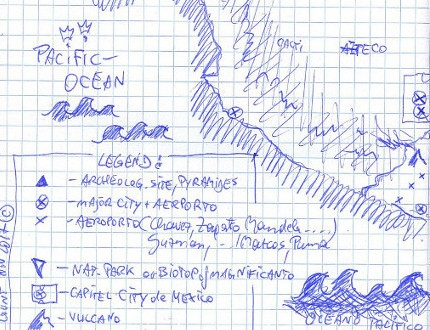 PACIFIC-
OCEAN
CACTI
AZTECO
LEGEND:
- ARCHEOLOG. SITE, PYRAMIDES
- MAJOR CITY + AERPORTO
- AEROPORTO (Chavez, Zapata Mandela ....)
Guzman, - Marcos
- NAT. PARK or BIOTOP of MAGNIFICANTO
- CAPITEL CITY de MEXICO
- VULCANO
OCEANO PACIFICO